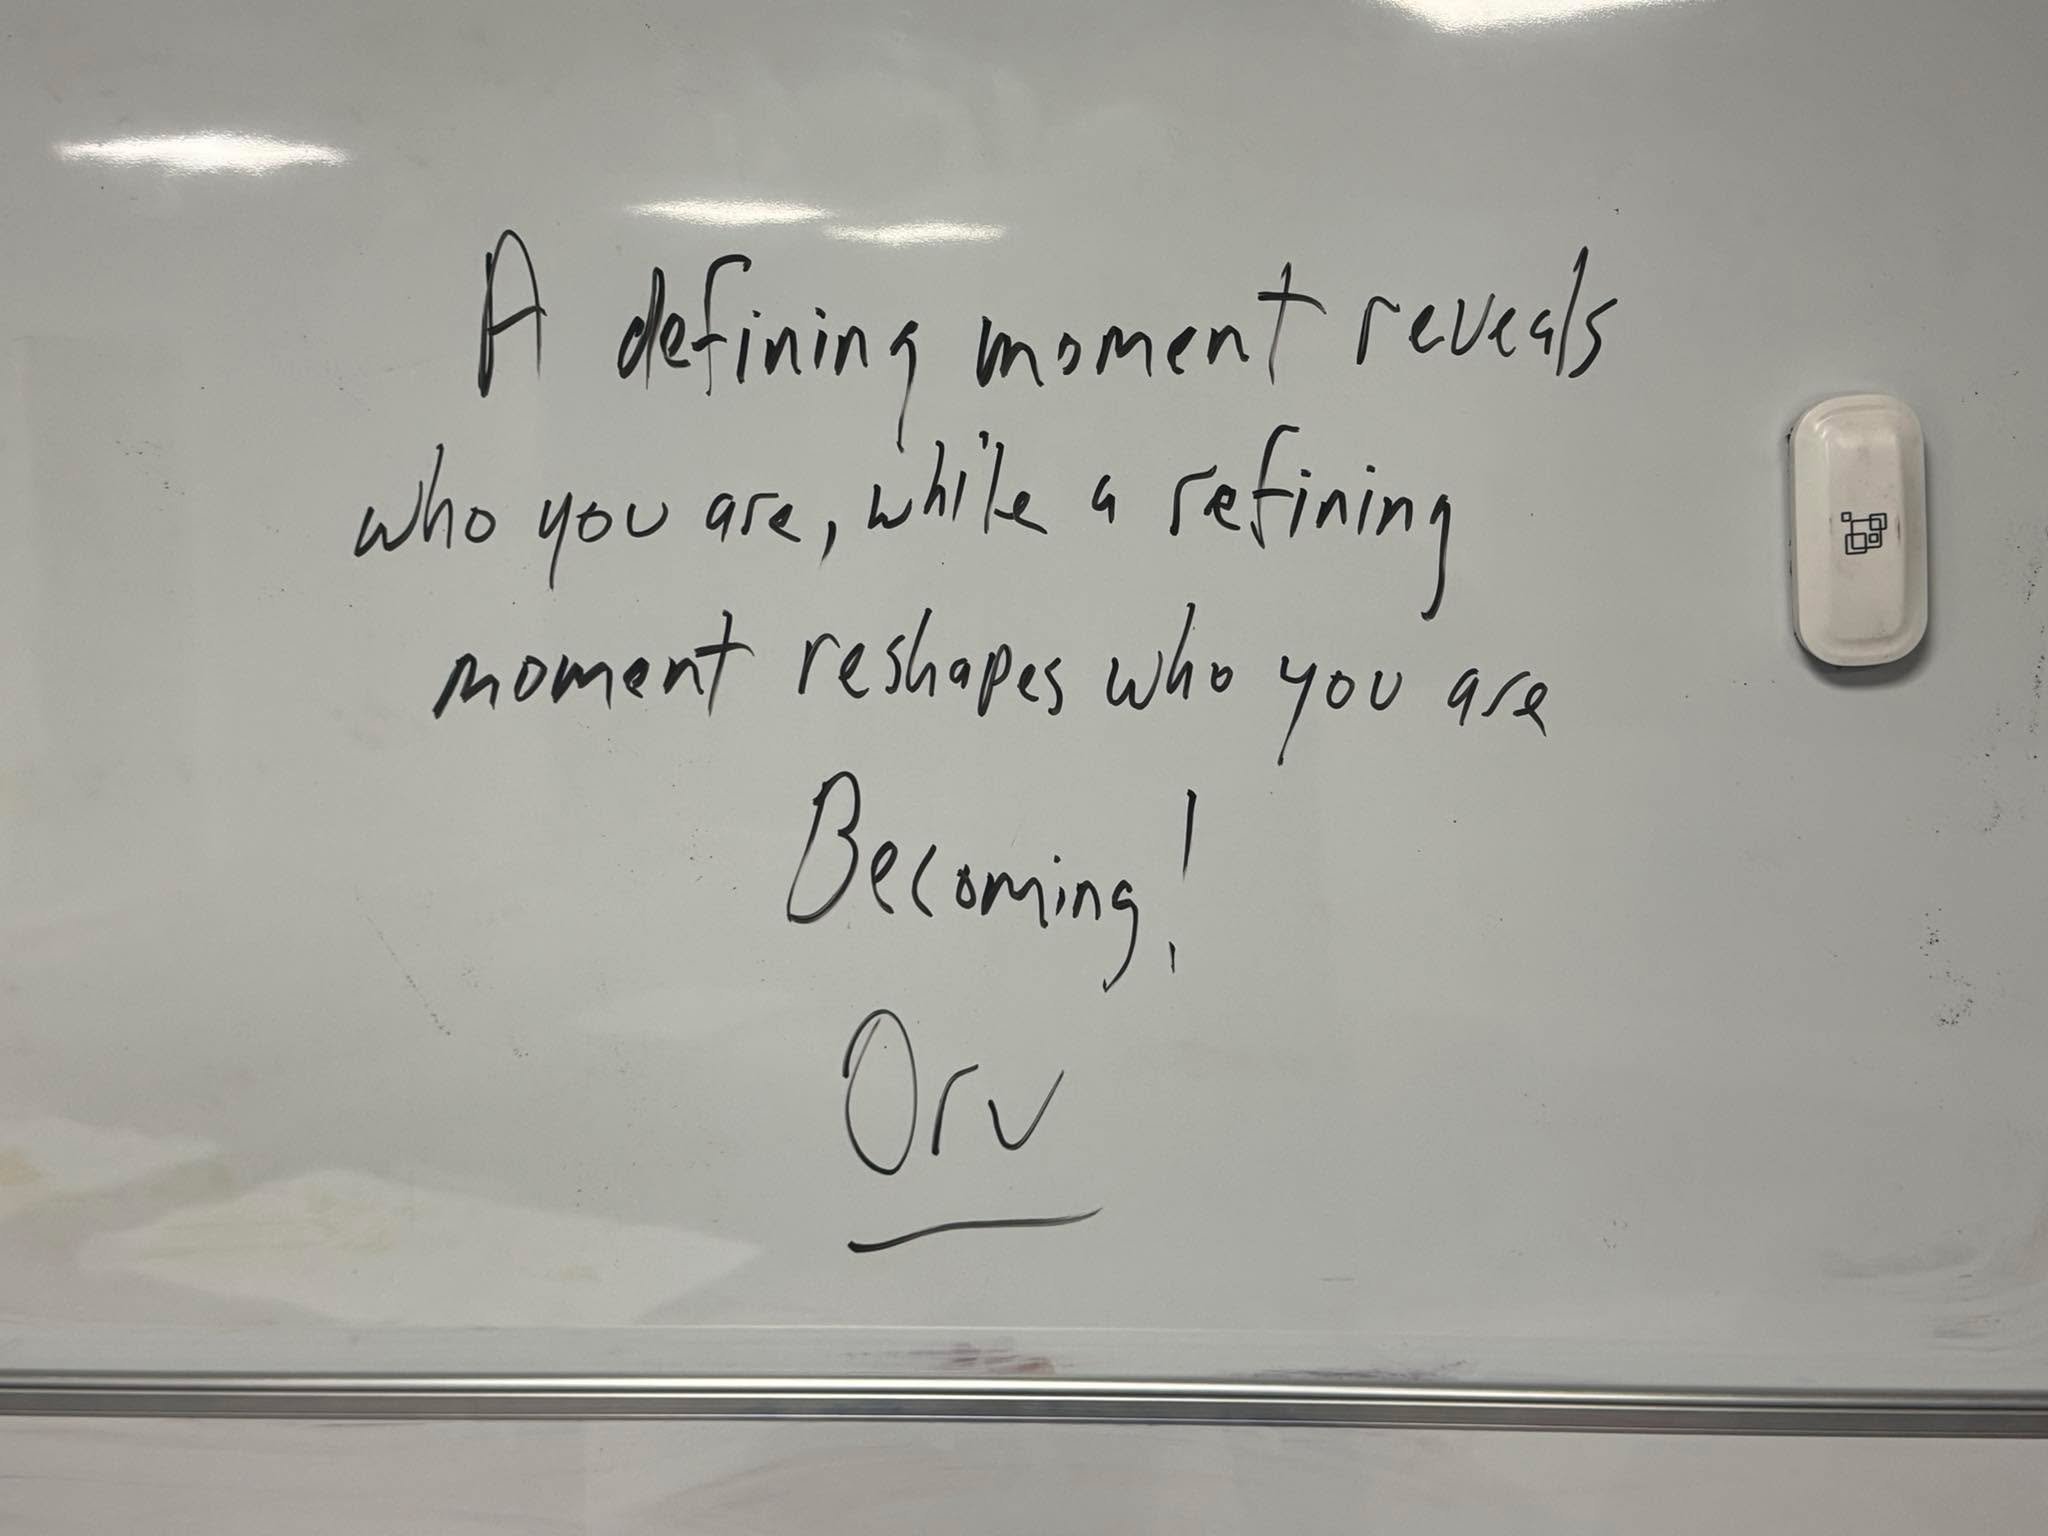 A defining moment reveals
who you are, while a refining
moment reshapes who you are
Becoming!
Orv